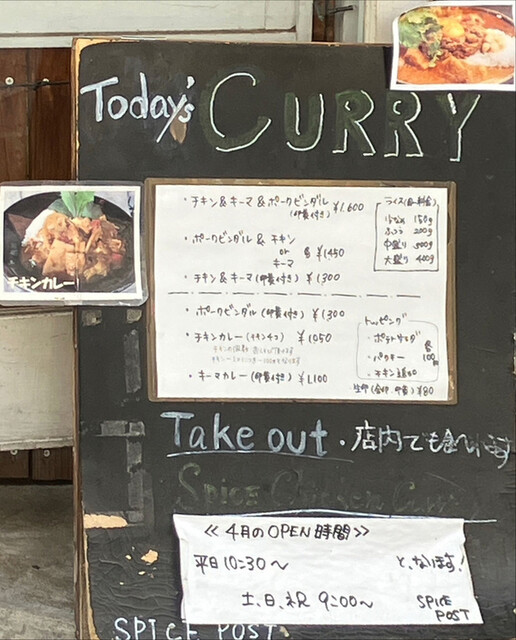 Today's CURRY
チキンカレー
・チキン&キーマ&ポークビンダル ¥1,600
(卵黄付き)
・ポークビンダル & チキン
or 各 ¥1450
キーマ
・チキン&キーマ(卵黄付き) ¥1,300
・ポークビンダル(卵黄付き) ¥1300
・チキンカレー ¥1050
・キーマカレー(卵黄付き) ¥1,100
ライス
150g
ふつう 200g
中盛り 300g
大盛り 400g
トッピング
・ポテトサラダ 各
・パクチー 100
・チキン追加
¥80
Take out・店内でも食べれます
SPICE Chicken Curry
≪4月のOPEN時間≫
平日 10:30〜
と、なります!
土、日、祝 9:00〜
SPICE
POST
SPICE POST